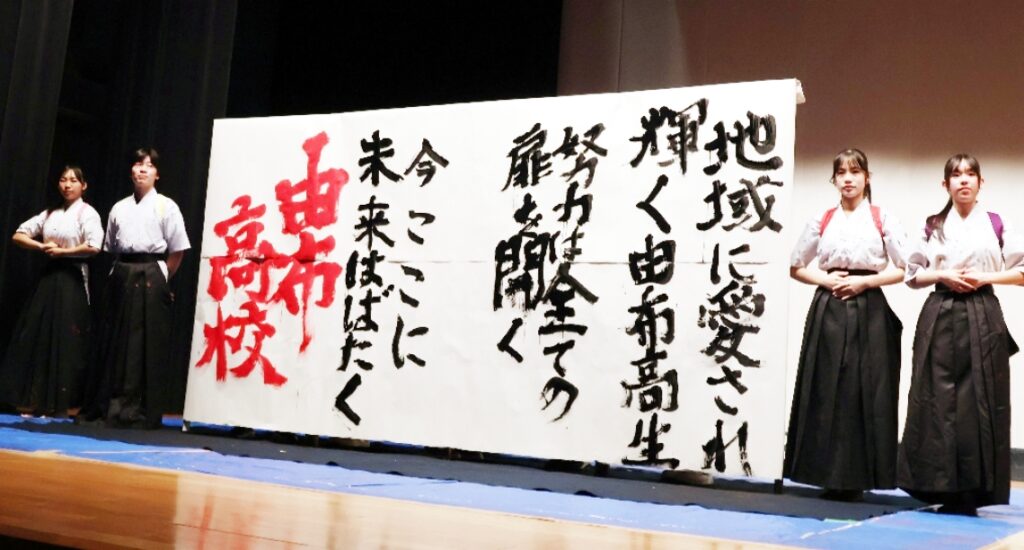 地域に愛され
輝く由布高生
努力は全ての
扉を開く
今ここに
未来はばたく
由布
高校